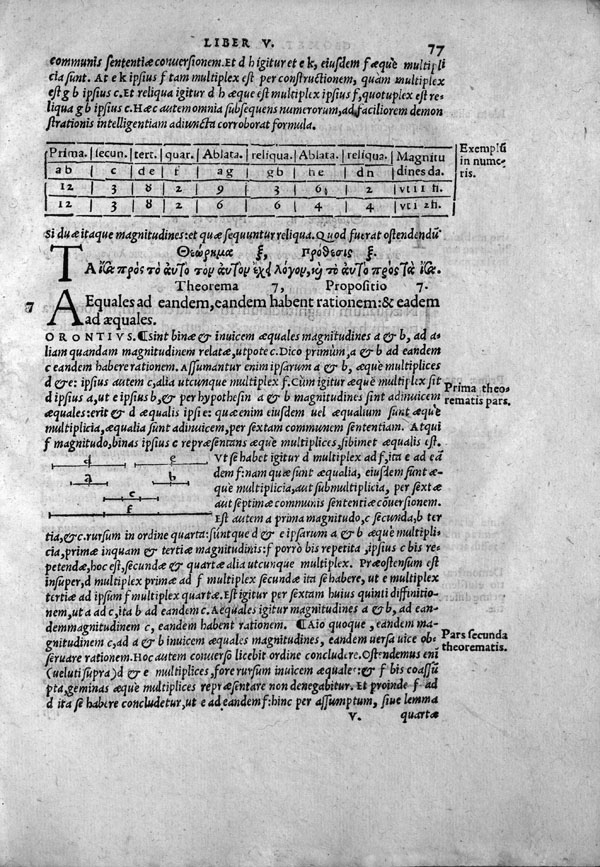 LIBER V. 77
communis sententiæ conversionem. Et d h igitur et e k, eiusdem f æque multipli
cia sunt. At e k ipsius f tam multiplex est per constructionem, quam multiplex
est g b ipsius c. Et reliqua igitur d h æque est multiplex ipsius f, quotuplex est re-
liqua g b ipsius c. Hæc autem omnia subsequens numerorum, ad faciliorem demon
strationis intelligentiam adiuncta corroborat formula.
Prima. secun. tert. quar. Ablata. reliqua. Ablata. reliqua. Magnitu
ab c de f ag gb he dn dines da.
12 3 8 2 9 3 6 2
12 3 8 2 6 6 4 4
Exemplũ
in nume-
ris.
Si duæ itaque magnitudines: et quæ sequuntur reliqua. Quod fuerat ostendendũ
Θεώρημα ξ, πρόθεσις ξ.
Theorema 7, Propositio 7.
7 AEquales ad eandem, eandem habent rationem: & eadem
ad æquales.
ORONTIVS. ¶Sint binæ & inuicem æquales magnitudines a & b, ad a-
liam quandam magnitudinem relatæ, utpote c. Dico primùm, a & b ad eandem
c eandem habere rationem. Assumantur enim ipsarum a & b, æque multiplices
d & e: ipsius autem c, alia utcunque multiplex f. Cùm igitur æque multiplex sit
d ipsius a, ut e ipsius b, & per hypothesin a & b magnitudines sint adinuicem
æquales: erit & d æqualis ipsi e: quæ enim eiusdem uel æqualium sunt æque
multiplicia, æqualia sunt adinuicem, per sextam communem sententiam. Atqui
f magnitudo, binas ipsius c repræsentans æque multiplices, sibimet æqualis est.
Prima theo-
rematis pars.
d e
a b
c
f
Vt se habet igitur d multiplex ad f, ita e ad eã
dem f: nam quæ sunt æqualia, eiusdem sunt æ-
què multiplicia, aut submultiplicia, per sextæ
aut septimæ communis sententiæ cõuersionem.
Est autem a prima magnitudo, c secunda, b ter
tia, & c. rursum in ordine quarta: suntque d & e ipsarum a & b æque multipli-
cia, primæ inquam & tertiæ magnitudinis: f porrò bis repetita, ipsius c bis re-
petendæ, hoc est, secundæ & quartæ alia utcunque multiplex. Præostensum est
insuper, d multiplex primæ ad f multiplex secundæ ita se habere, ut e multiplex
tertiæ ad ipsum f multiplex quartæ. Est igitur per sextam huius quinti diffinitio-
nem, ut a ad c, ita b ad eandem c. Aequales igitur magnitudines a & b, ad ean-
dem magnitudinem c, eandem habent rationem. ¶Aio quoque, eandem ma-
gnitudinem c, ad a & b inuicem æquales magnitudines, eandem uersa uice ob-
seruare rationem. Hoc autem conuerso licebit ordine concludere. Ostendemus eni
(ueluti supra) d & e multiplices, fore rursum inuicem æquales: & f bis coassũ
pta, geminas æque multiplices repræsentare non denegabitur. Et proinde f ad
d ita se habere concludetur, ut e ad eandem f: hinc per assumptum, siue lemma
Pars secunda
theorematis.
V. quartæ